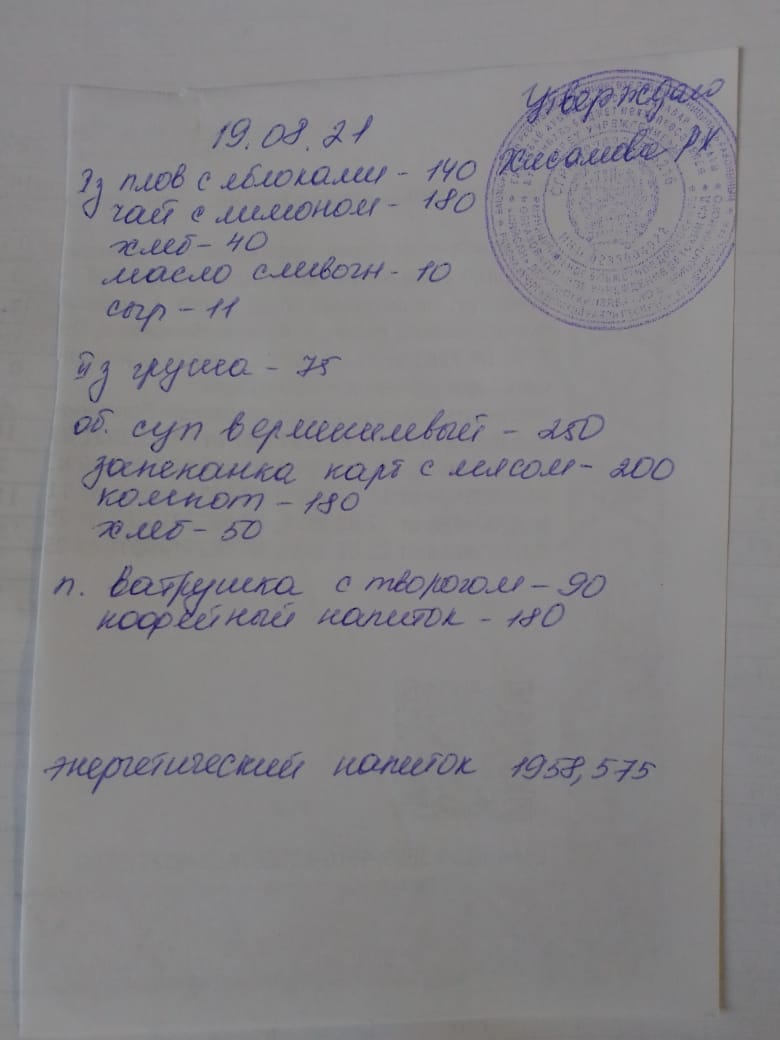 Утверждаю
19.08.21
Хисамова РК
Iз плов с яблоками - 140
чай с лимоном - 180
хлеб - 40
масло сливочн - 10
сыр - 11
II з груша - 75
об. суп вермишелевый - 250
запеканка карт с мясом - 200
компот - 180
хлеб - 50
п. Ватрушка с творогом - 90
кофейный напиток - 180
энергетический напиток 1958,575